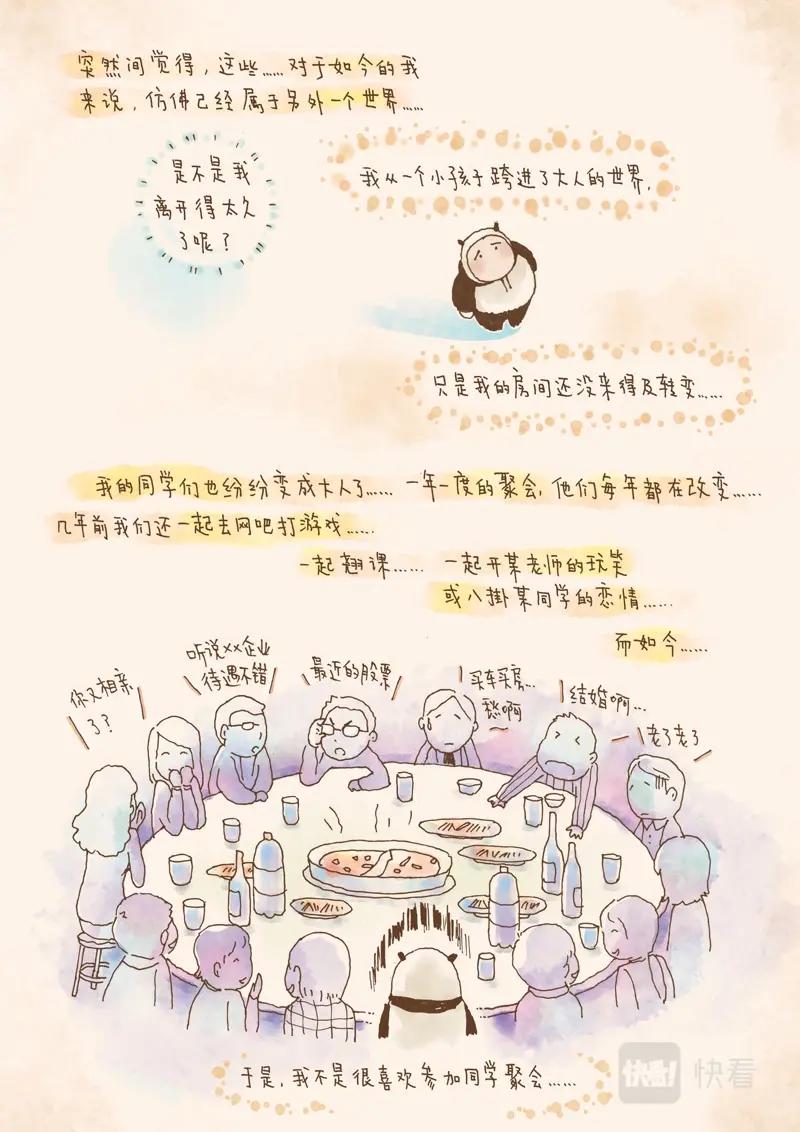 突然间觉得，这些……对于如今的我
来说，仿佛已经属于另外一个世界……
是不是我
离开得太久
了呢？
我从一个小孩子跨进了大人的世界，
只是我的房间还没来得及转变……
我的同学们也纷纷变成大人了…… 一年一度的聚会，他们每年都在改变……
几年前我们还一起去网吧打游戏……
一起翘课…… 一起开某老师的玩笑
或八卦某同学的恋情……
而如今……
你又相亲
了？
听说××企业
待遇不错
最近的股票
买车买房…
愁啊
结婚啊…
老了老了
于是，我不是很喜欢参加同学聚会……
快看!
快看